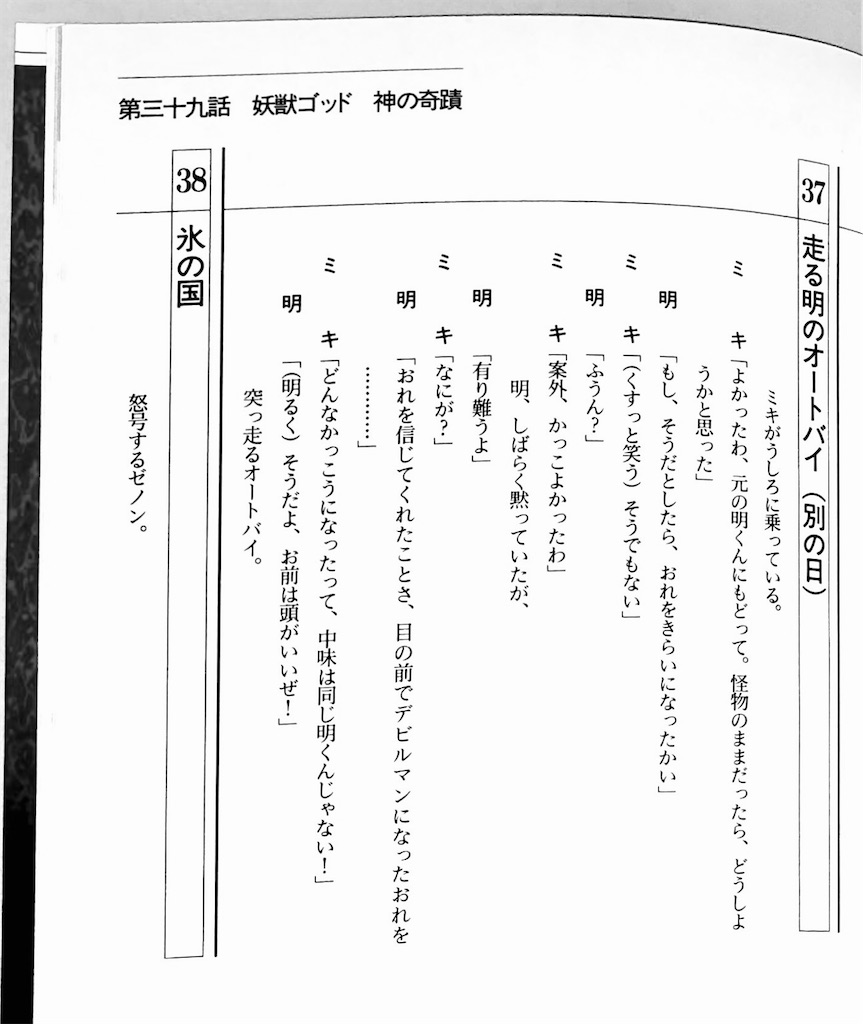 第三十九話　妖獣ゴッド　神の奇蹟
37　走る明のオートバイ（別の日）
ミキがうしろに乗っている。
ミキ「よかったわ、元の明くんにもどって。怪物のままだったら、どうしよ
うかと思った」
明「もし、そうだとしたら、おれをきらいになったかい」
ミキ「（くすっと笑う）そうでもない」
明「ふうん？」
ミキ「案外、かっこよかったわ」
明、しばらく黙っていたが、
明「有り難うよ」
ミキ「なにが？」
明「おれを信じてくれたことさ、目の前でデビルマンになったおれを
…………」
ミキ「どんなかっこうになったって、中味は同じ明くんじゃない！」
明「（明るく）そうだよ、お前は頭がいいぜ！」
突っ走るオートバイ。
38　氷の国
怒号するゼノン。